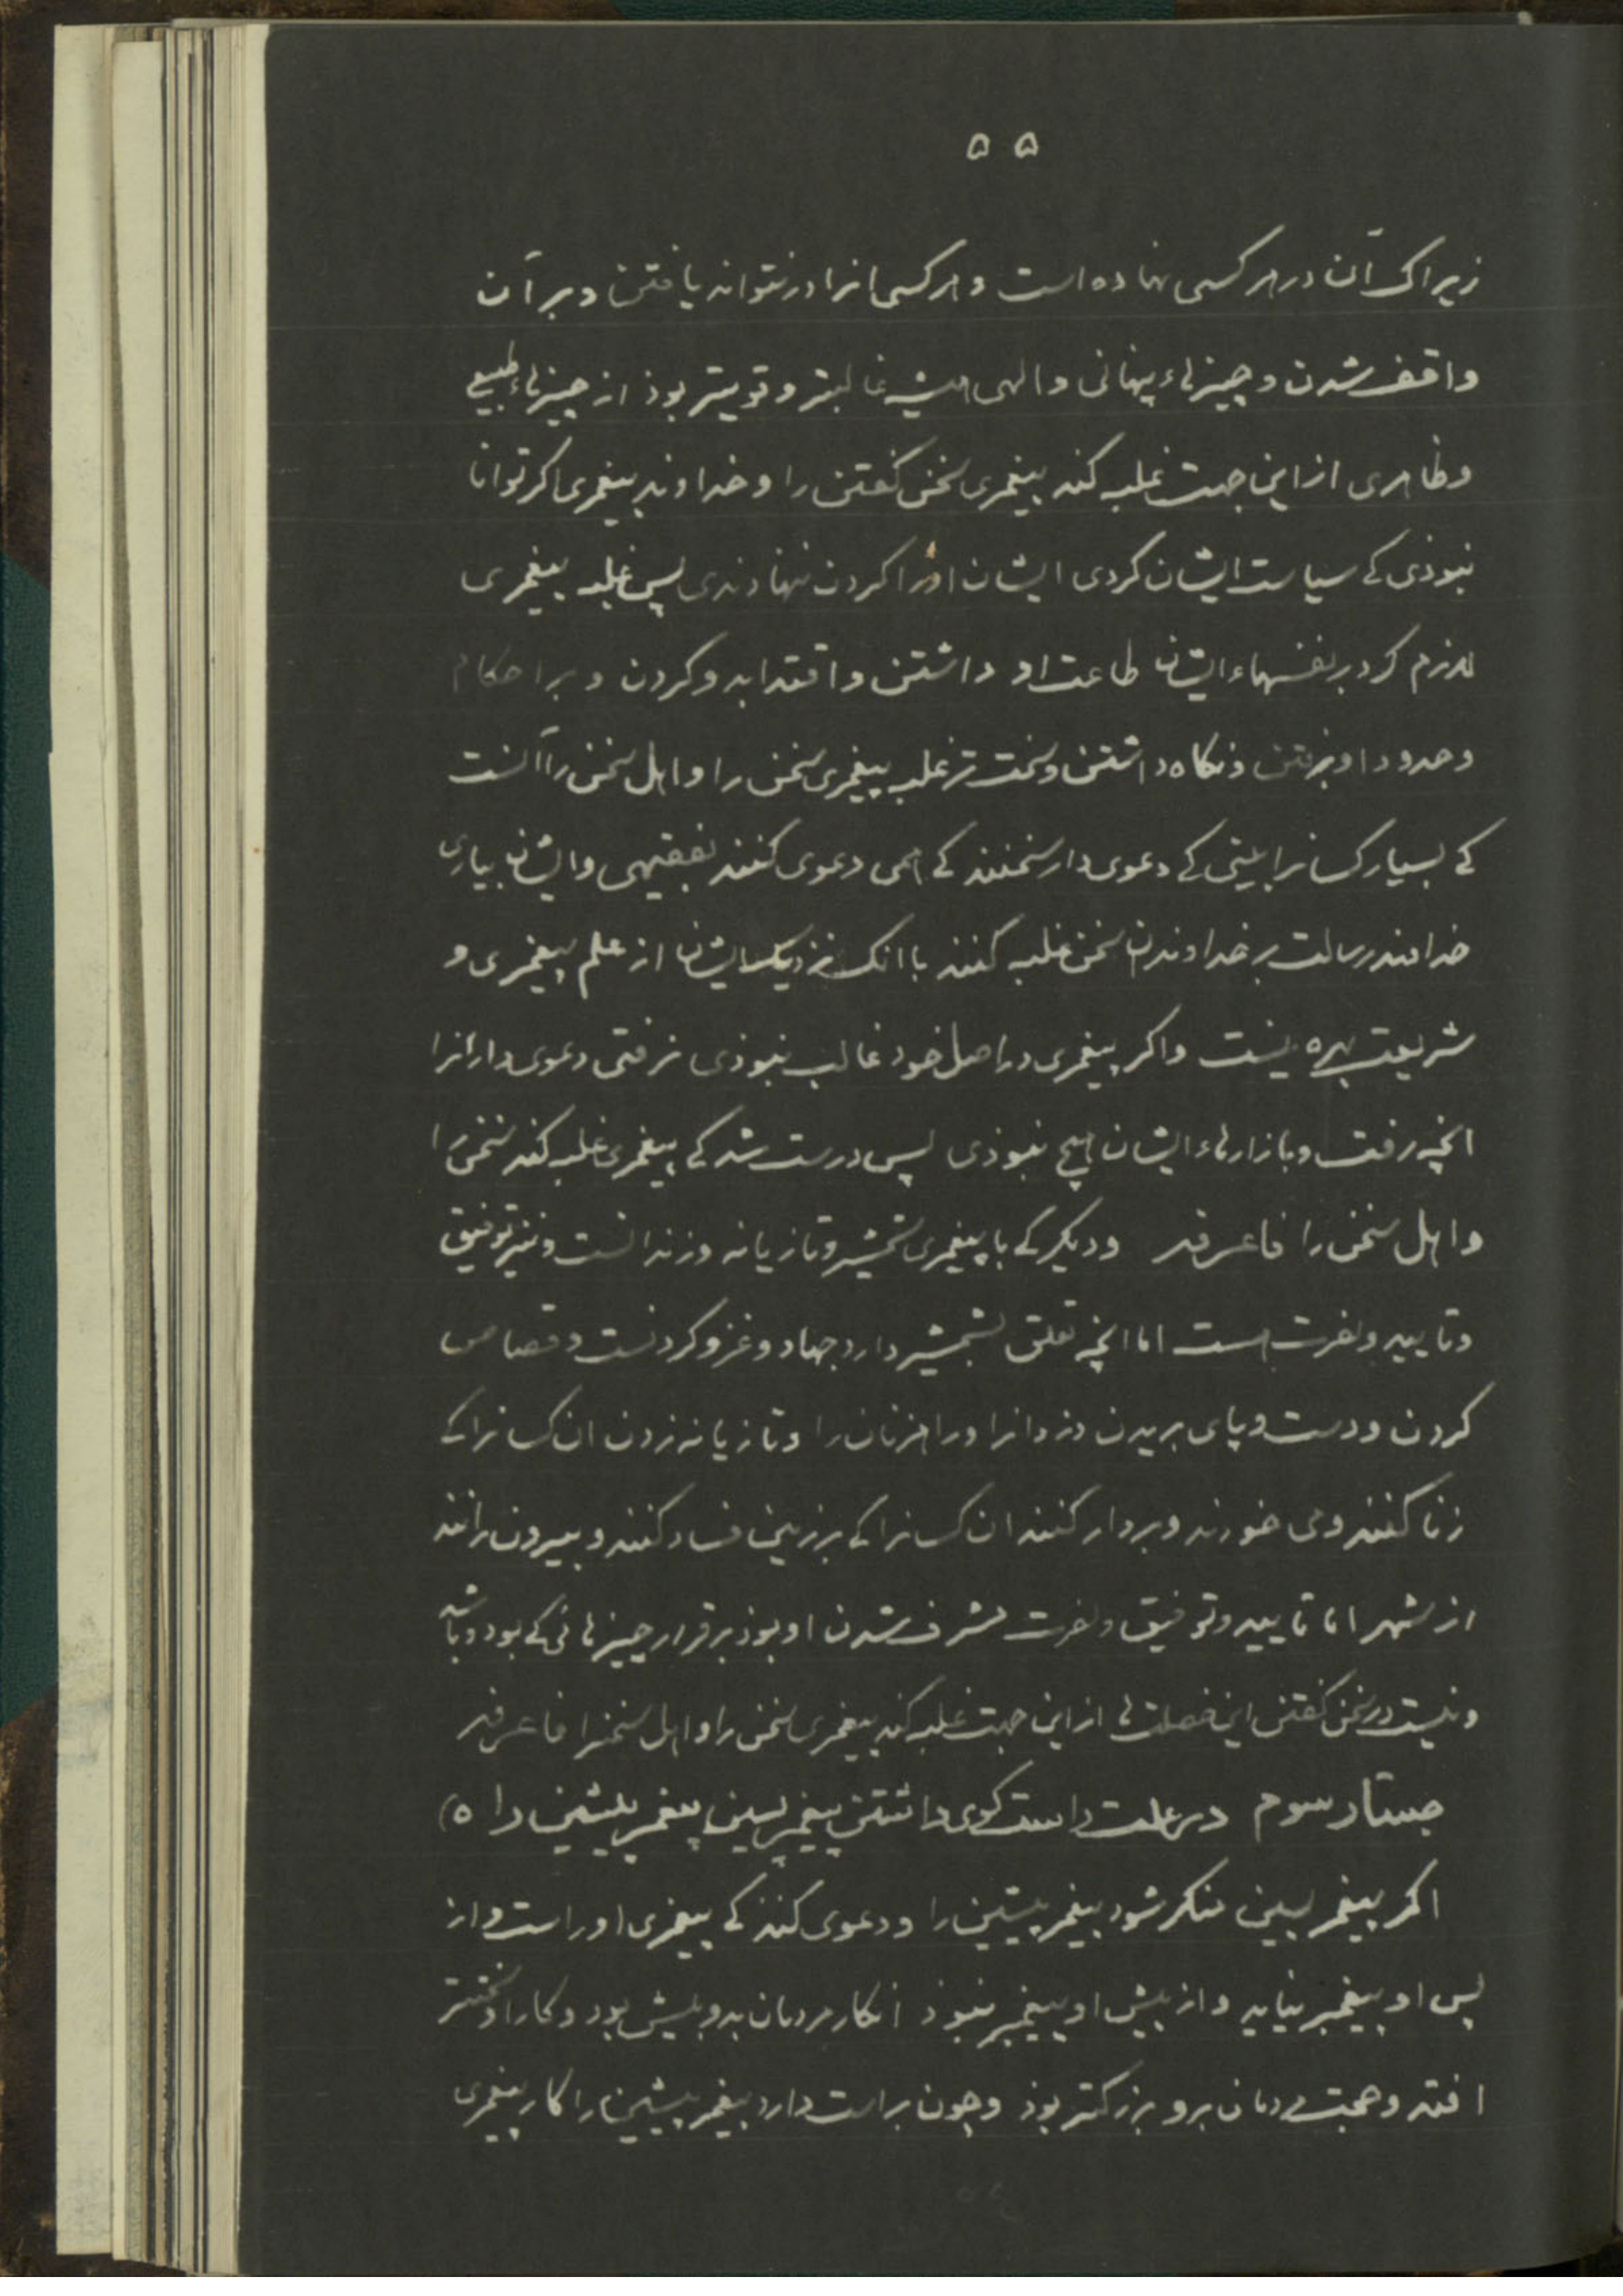 ۵۵
زیراک آن در هر کسی نهاده است و هر کسی انرا در نتواند یافتن و بر آن
واقف شدن و چیزهاء پنهانی و الهی همیشه غالبتر و قویتر بوذ از چیزهاء طبیعی
و ظاهری از این جهت غلبه کند پیغمبری سخن گفتن را و خداوند پیغمبری اگر توانا
نبوذی کے سیاست ایشان کردی ایشان اورا گردن ننهادندی پس غلبه پیغمبری
لازم کرد بر نفسهاء ایشان طاعت او داشتن و اقتدا بدو کردن و بر احکام
و حدود او برفتن و نگاه داشتن و سخت تر غلبه پیغمبری سخن را و اهل سخن را آنست
کے بسیار کسانرا بینی کے دعوی دار سخنند کے همی دعوی کنند بفقیهی و ایشان بیاری
خداوند رسالت بر خداوندان سخن غلبه کنند با انک نزدیک ایشان از علم پیغمبری و
شریعت بهره نیست و اگر پیغمبری در اصل خود غالب نبوذی نرفتی دعوی دارانرا
انچه رفت و بازارهاء ایشان هیچ نبوذی پس درست شد کے پیغمبری غلبه کند سخن را
و اهل سخن را فاعرفه و دیگر کے با پیغمبری شمشیر و تازیانه و زندانست و نیز توفیق
و تایید و نصرت هست اما انچه تعلق بشمشیر دارد جهاد و غزو کردنست و قصاص
کردن و دست و پای بریدن دزدانرا و راهزنان را و تازیانه زدن ان کسانرا کے
زنا کنند و می خورند و بردار کنند ان کسانرا کے بر زمین فساد کنند و بیرون رانند
از شهر اما تایید و توفیق و نصرت مشرف شدن او بوذ بر قرار چیزهائی کے بود و باشد
و نیست در سخن گفتن این خصلت ها از این جهت غلبه کند پیغمبری سخن را و اهل سخنرا فاعرفه
جستار سوم در علت راست گوی داشتن پیغمبر پسین پیغمبر پیشین را ه)
اگر پیغمبر پسین منکر شود پیغمبر پیشین را و دعوی کند کے پیغمبری او راست و از
پس او پیغمبر نیاید و از پیش او پیغمبر نبوذ انکار مردمان بدو بیش بود و کار او سختتر
افتد و حجت مردمان برو بزرگتر بوذ و چون براست دارد پیغمبر پیشین را کار پیغمبری